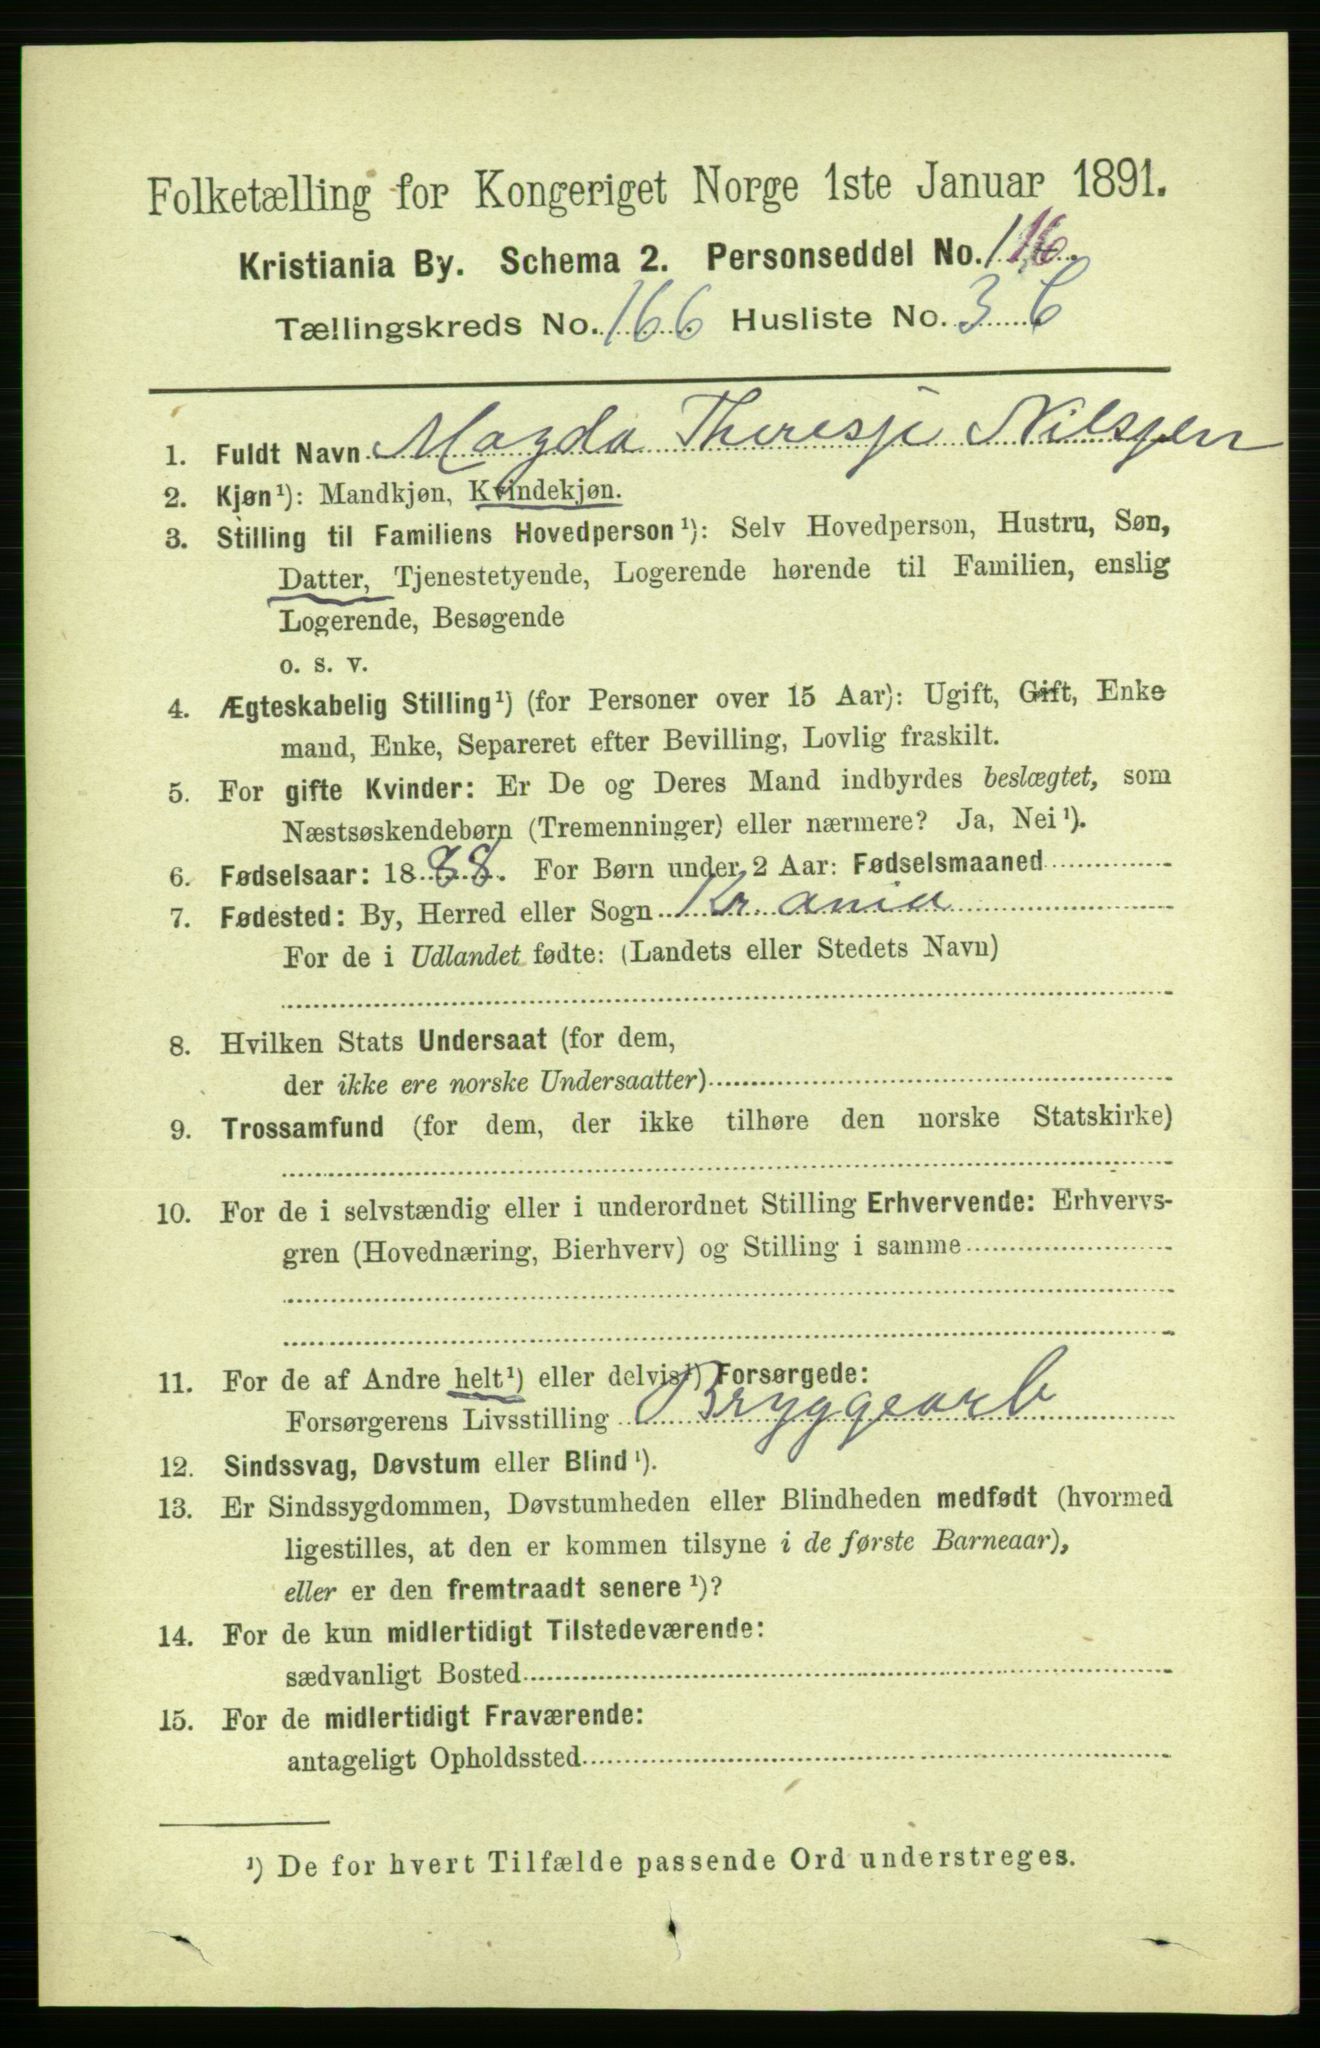 Folketælling for Kongeriget Norge 1ste Januar 1891.
Kristiania By. Schema 2. Personseddel No. 116.
Tællingskreds No. 166 Husliste No. 3 C
1. Fuldt Navn Magda Theresje Nilsjen
2. Kjøn¹): Mandkjøn, Kvindekjøn.
3. Stilling til Familiens Hovedperson¹): Selv Hovedperson, Hustru, Søn,
Datter, Tjenestetyende, Logerende hørende til Familien, enslig
Logerende, Besøgende
o. s. v.
4. Ægteskabelig Stilling¹) (for Personer over 15 Aar): Ugift, Gift, Enke
mand, Enke, Separeret efter Bevilling, Lovlig fraskilt.
5. For gifte Kvinder: Er De og Deres Mand indbyrdes beslægtet, som
Næstsøskendebørn (Tremenninger) eller nærmere? Ja, Nei¹).
6. Fødselsaar: 1888. For Børn under 2 Aar: Fødselsmaaned
7. Fødested: By, Herred eller Sogn Kr. ania
For de i Udlandet fødte: (Landets eller Stedets Navn)
8. Hvilken Stats Undersaat (for dem,
der ikke ere norske Undersaatter)
9. Trossamfund (for dem, der ikke tilhøre den norske Statskirke)
10. For de i selvstændig eller i underordnet Stilling Erhvervende: Erhvervs-
gren (Hovednæring, Bierhverv) og Stilling i samme
11. For de af Andre helt¹) eller delvis¹) Forsørgede:
Forsørgerens Livsstilling Bryggearb
12. Sindssvag, Døvstum eller Blind¹).
13. Er Sindssygdommen, Døvstumheden eller Blindheden medfødt (hvormed
ligestilles, at den er kommen tilsyne i de første Barneaar),
eller er den fremtraadt senere¹)?
14. For de kun midlertidigt Tilstedeværende:
sædvanligt Bosted
15. For de midlertidigt Fraværende:
antageligt Opholdssted
¹) De for hvert Tilfælde passende Ord understreges.